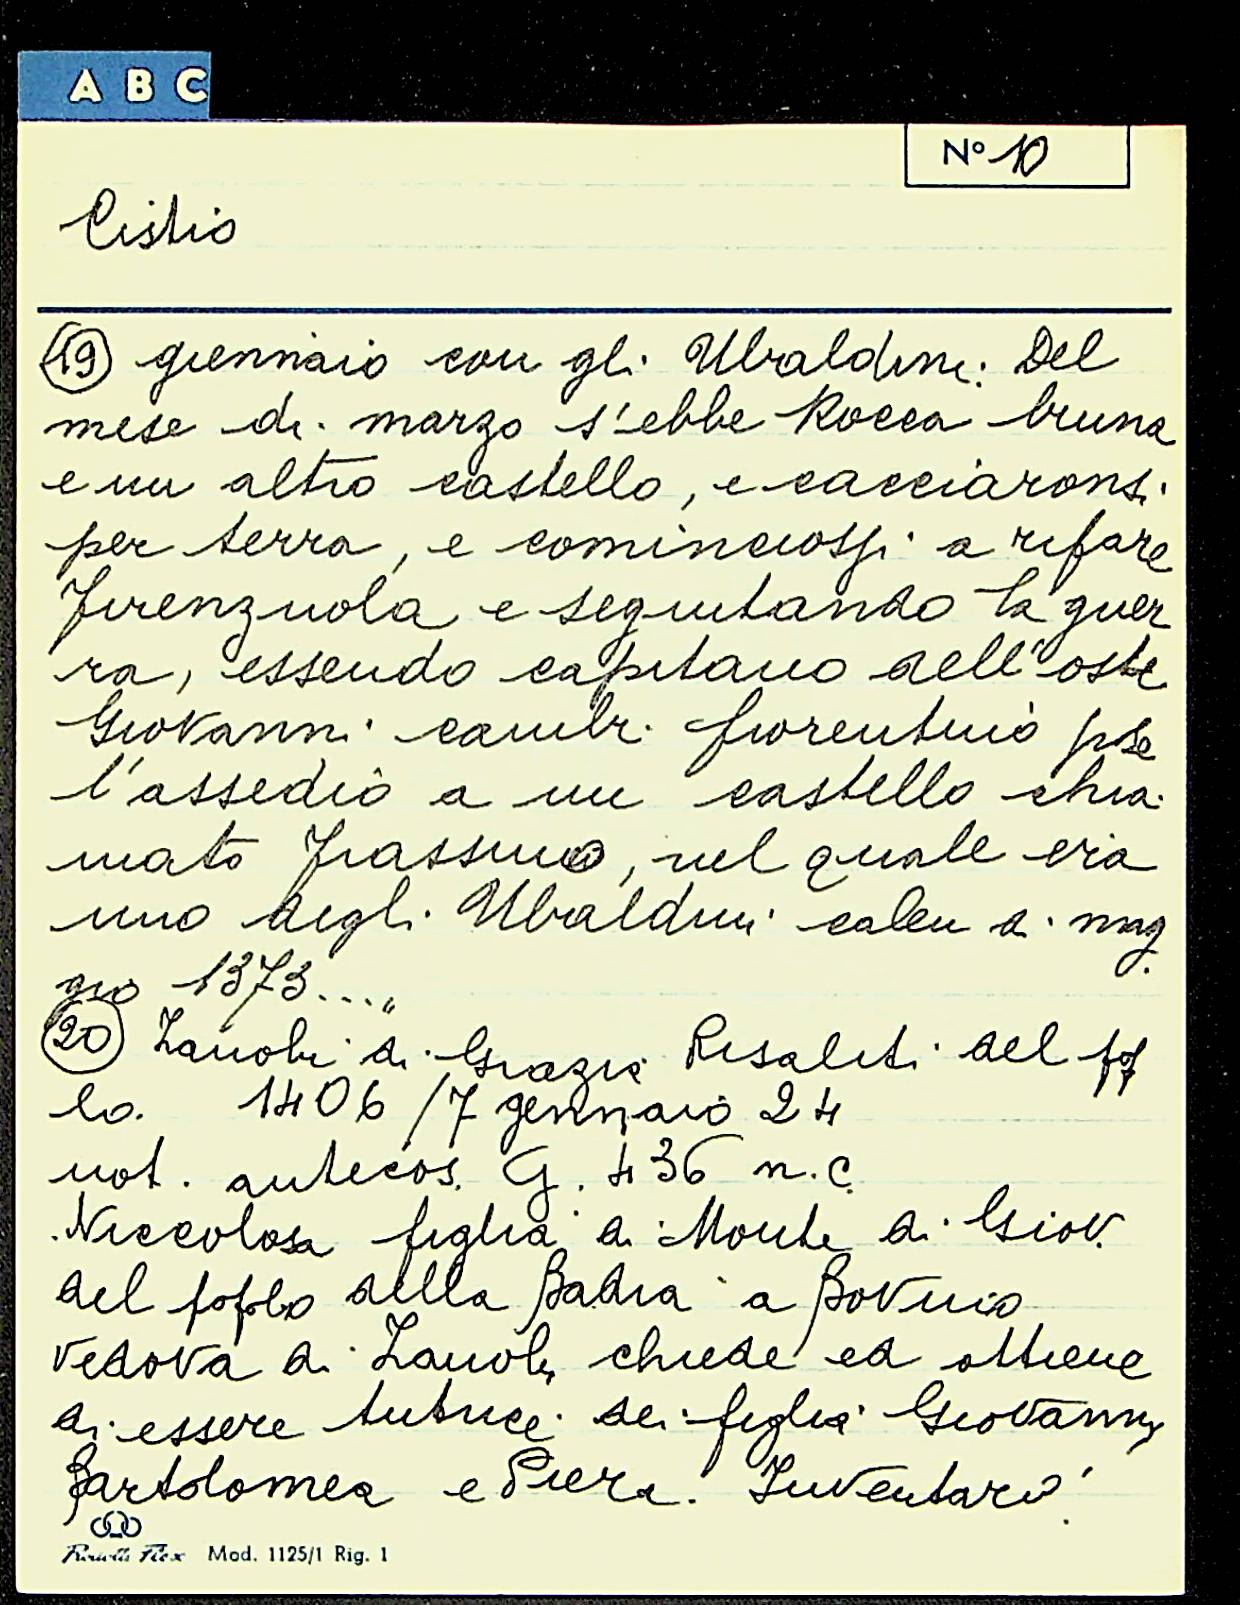 A B C
N° 10
Cistio
(19) giennaio con gli Ubaldini. Del
mese di marzo s'ebbe Rocca bruna
e un altro castello, e cacciaronsi
per terra, e cominciossi a rifare
Firenzuola e seguitando la guer
ra, essendo capitano dell'oste
Giovanni cambi fiorentino pose
l'assedio a un castello chia
mato Frassino, nel quale era
uno degli Ubaldini calen di mag
gio 1373...."
(20) Zanobi di Grazia Risaliti del pop
lo. 1406/7 gennaio 24
not. antecos. G. 436 n.c.
Niccolosa figlia di Monte di Giov.
del popolo della Badia a Bovino
vedova di Zanobi chiede ed ottiene
di essere tutrice dei figli Giovanni,
Bartolomea e Piera. Inventario
Mod. 1125/1 Rig. 1